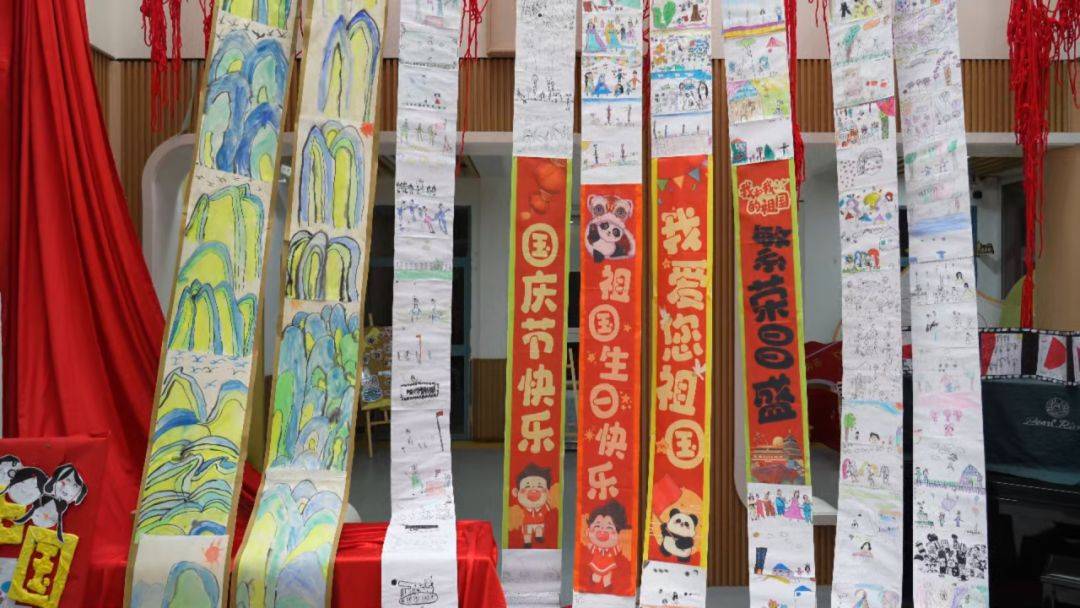 国庆节快乐
祖国生日快乐
我爱您祖国
的祖国
繁荣昌盛
Pearl Riv